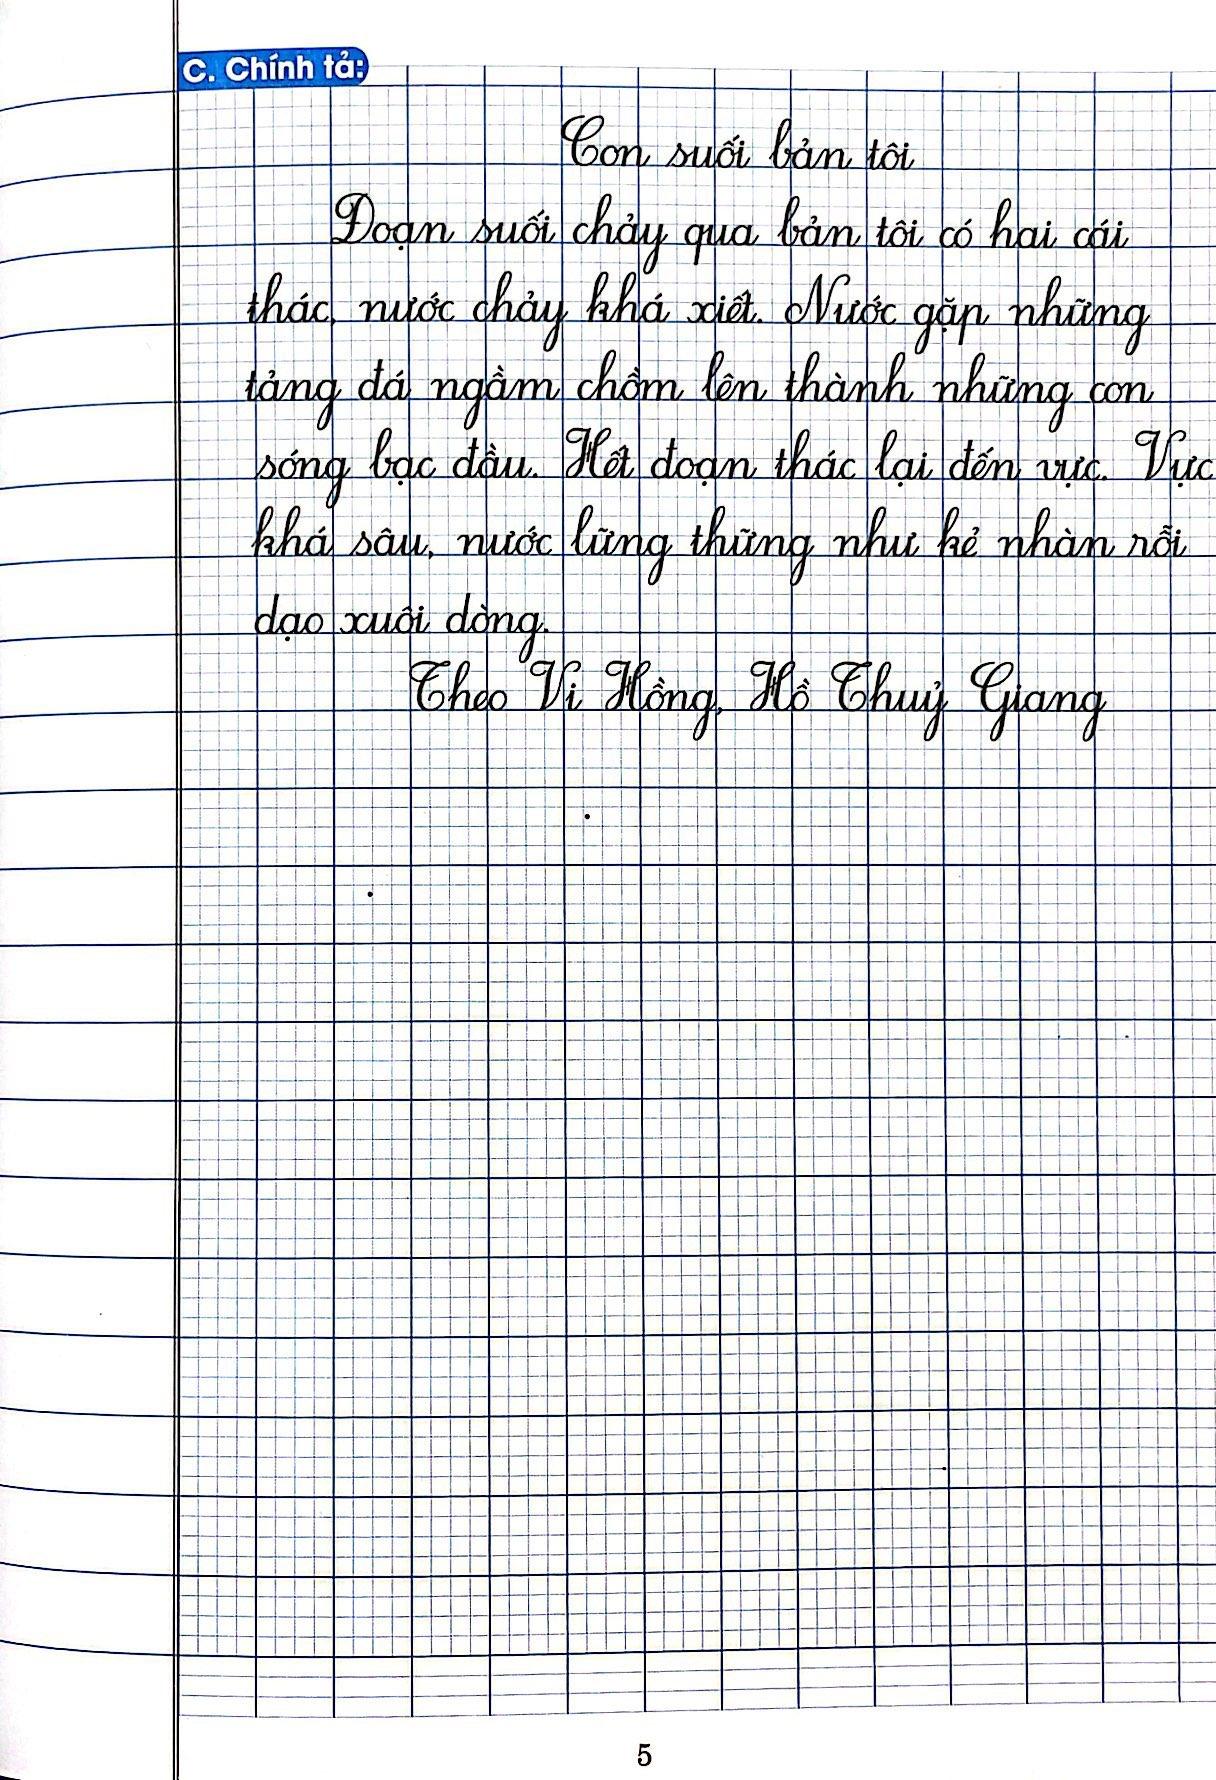 C. Chính tả:
Con suối bản tôi
Đoạn suối chảy qua bản tôi có hai cái
thác, nước chảy khá xiết. Nước gặp những
tảng đá ngầm chồm lên thành những con
sóng bạc đầu. Hết đoạn thác lại đến vực. Vực
khá sâu, nước lững thững như kẻ nhàn rỗi
dạo xuôi dòng.
Theo Vi Hồng, Hồ Thuỷ Giang
5